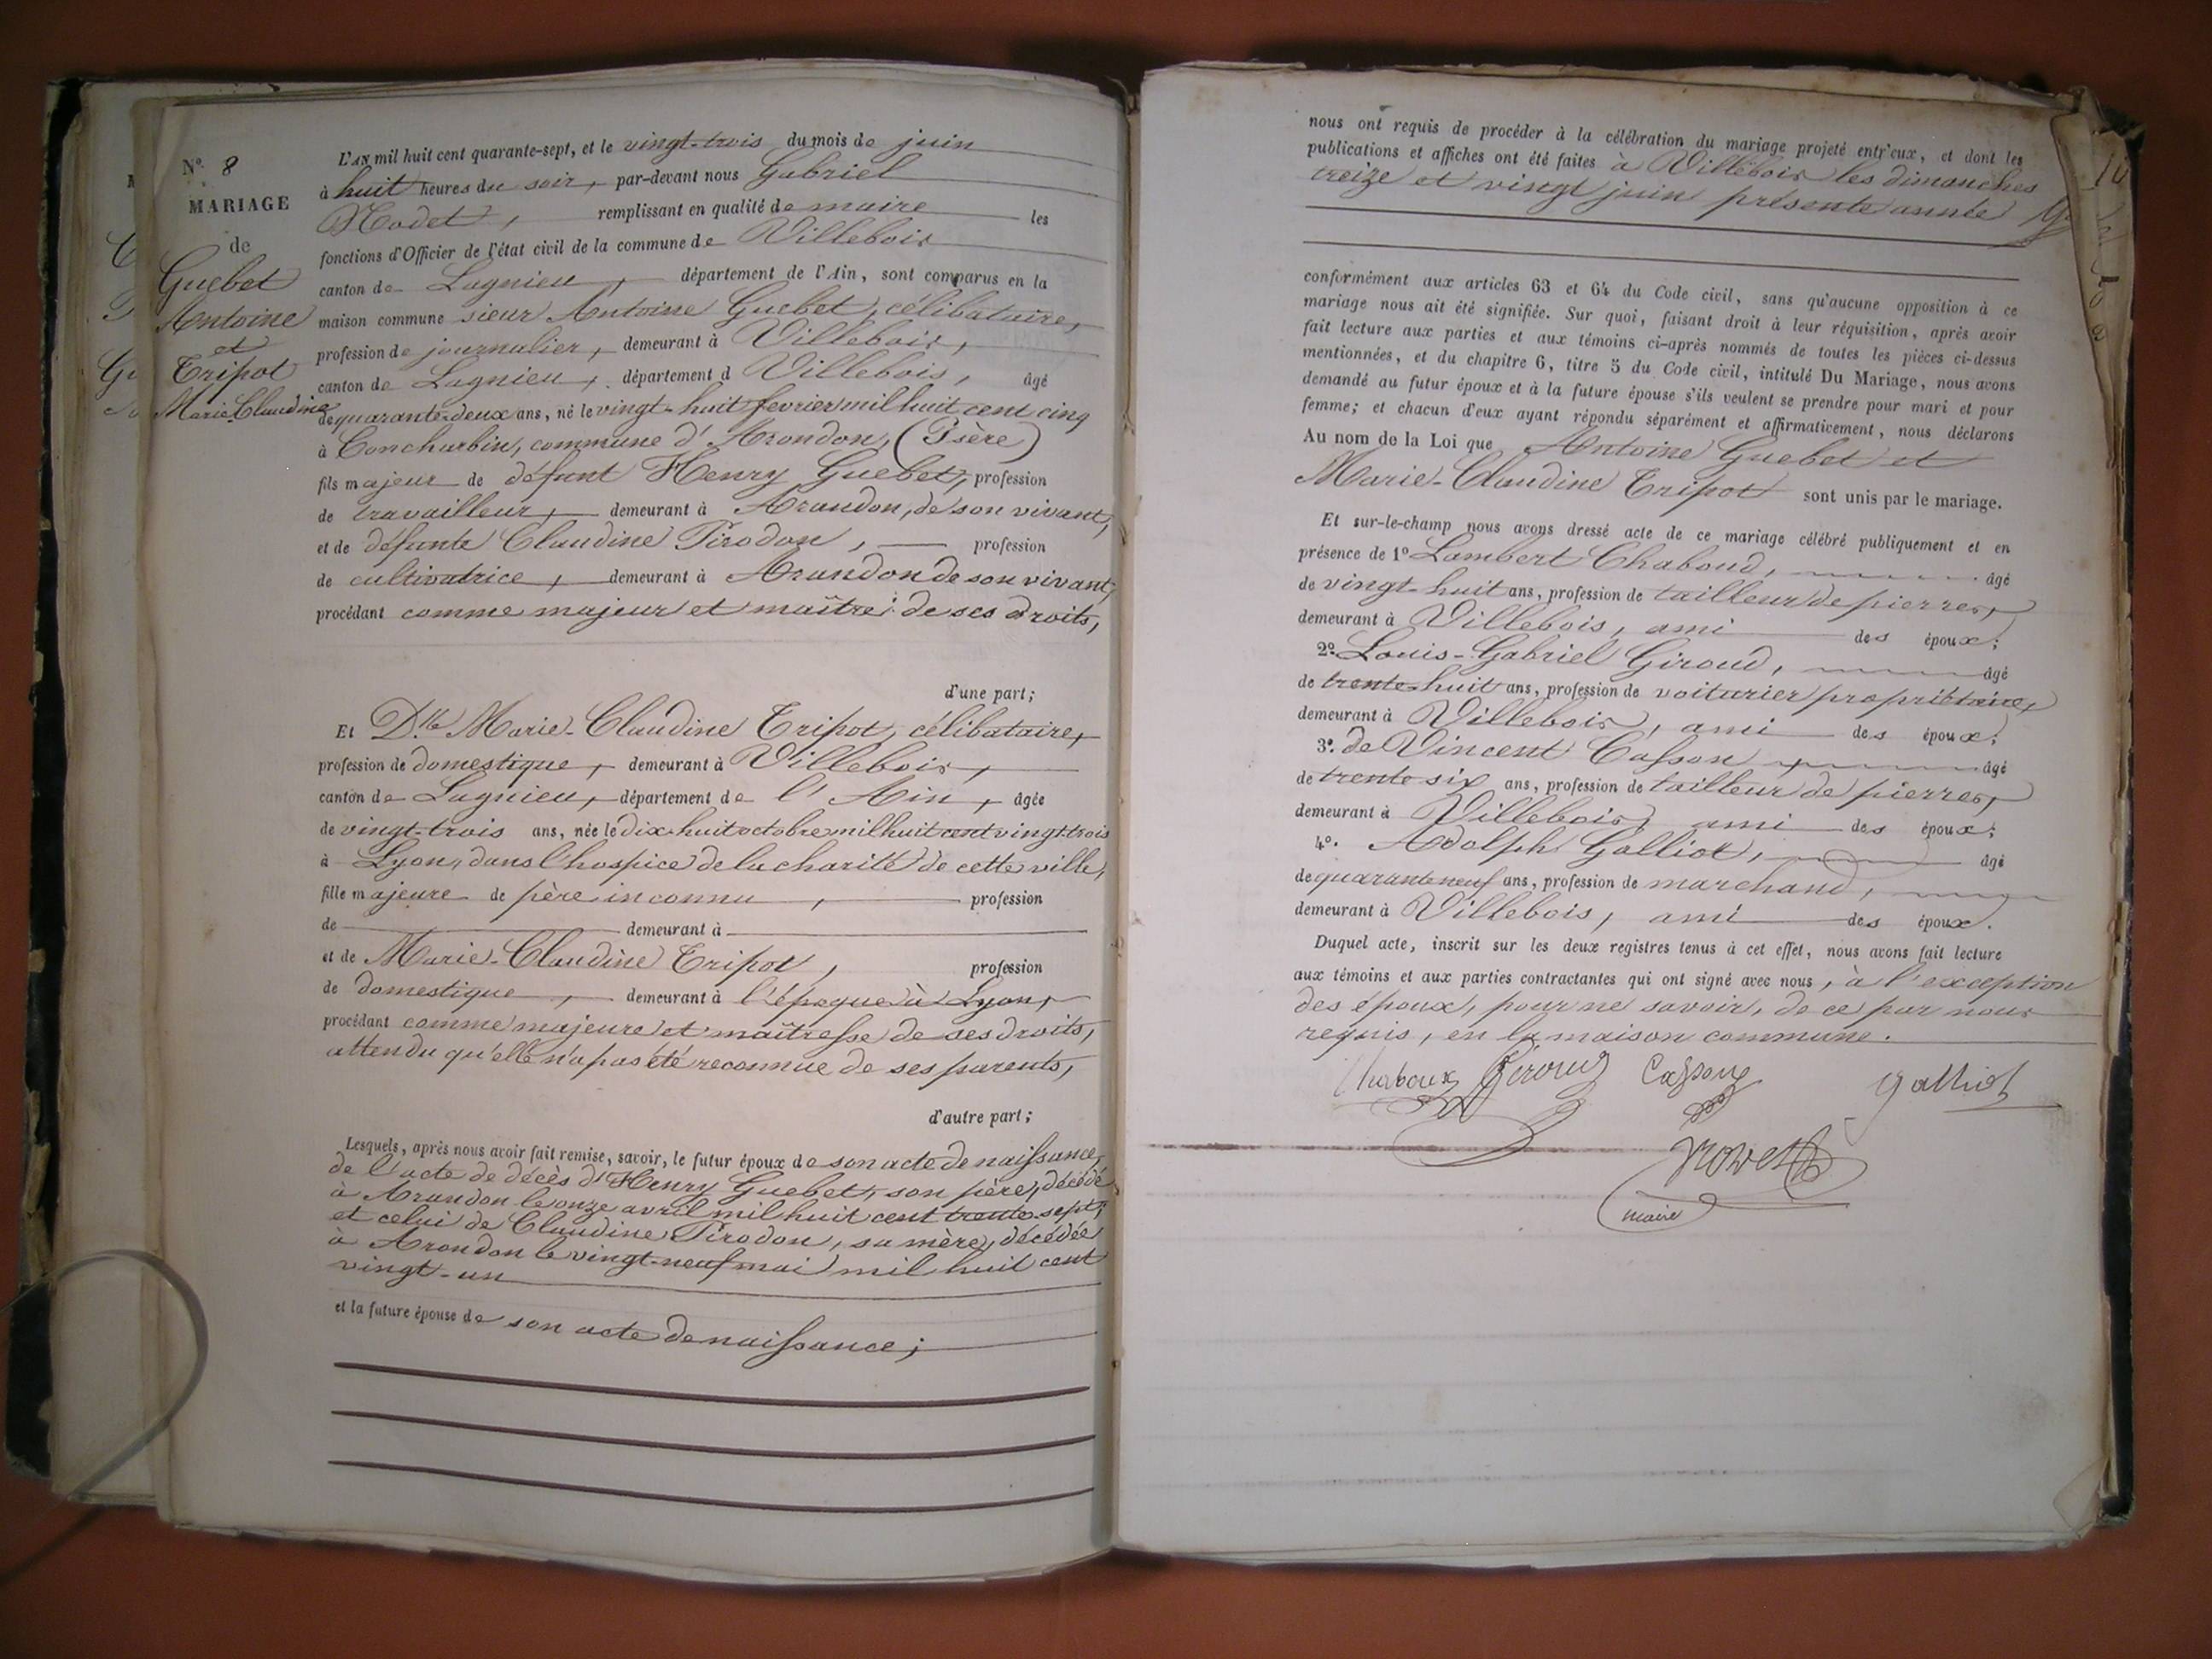 N.º 8
MARIAGE
de
Guebet
Antoine
et
Tripot
Marie Claudine
L'AN mil huit cent quarante-sept, et le vingt-trois du mois de juin
à huit heures du soir, par-devant nous Gabriel
Nodet, remplissant en qualité de maire les
fonctions d'Officier de l'état civil de la commune de Villebois
canton de Lagnieu, département de l'Ain, sont comparus en la
maison commune sieur Antoine Guebet, célibataire,
profession de journalier, demeurant à Villebois,
canton de Lagnieu, département d Villebois, âgé
de quarante-deux ans, né le vingt-huit fevrier mil huit cent cinq
à Concharbin, commune d'Arondon, (Isère)
fils majeur de défunt Henry Guebet, profession
de travailleur, demeurant à Arandon, de son vivant,
et de défunte Claudine Pirodon, profession
de cultivatrice, demeurant à Arandon de son vivant,
procédant comme majeur et maître de ses droits,
d'une part;
Et D.lle Marie-Claudine Tripot, célibataire,
profession de domestique, demeurant à Villebois,
canton de Lagnieu, département de l'Ain, âgée
de vingt-trois ans, née le dix-huit octobre mil huit cent vingt-trois
à Lyon, dans l'hospice de la charité de cette ville,
fille majeure de père inconnu, profession
de demeurant à
et de Marie-Claudine Tripot, profession
de domestique, demeurant à l'époque à Lyon,
procédant comme majeure et maîtresse de ses droits,
attendu qu'elle n'a pas été reconnue de ses parents,
d'autre part;
Lesquels, après nous avoir fait remise, savoir, le futur époux de son acte de naissance,
de l'acte de décès d'Henry Guebet, son père, décédé
à Arandon le onze avril mil huit cent trente-sept,
et celui de Claudine Pirodon, sa mère, décédée
à Arondon le vingt-neuf mai mil huit cent
vingt-un
et la future épouse de son acte de naissance;
nous ont requis de procéder à la célébration du mariage projeté entr'eux, et dont les
publications et affiches ont été faites à Villebois les dimanches
treize et vingt juin présente année
conformément aux articles 63 et 64 du Code civil, sans qu'aucune opposition à ce
mariage nous ait été signifiée. Sur quoi, faisant droit à leur réquisition, après avoir
fait lecture aux parties et aux témoins ci-après nommés de toutes les pièces ci-dessus
mentionnées, et du chapitre 6, titre 5 du Code civil, intitulé Du Mariage, nous avons
demandé au futur époux et à la future épouse s'ils veulent se prendre pour mari et pour
femme; et chacun d'eux ayant répondu séparément et affirmativement, nous déclarons
Au nom de la Loi que Antoine Guebet et
Marie-Claudine Tripot sont unis par le mariage.
Et sur-le-champ nous avons dressé acte de ce mariage célébré publiquement et en
présence de 1º Lambert Chaboud, âgé
de vingt-huit ans, profession de tailleur de pierres,
demeurant à Villebois, ami des époux;
2º Louis-Gabriel Giroud, âgé
de trente-huit ans, profession de voiturier propriétaire,
demeurant à Villebois, ami des époux;
3º de Vincent Casson âgé
de trente six ans, profession de tailleur de pierres,
demeurant à Villebois, ami des époux;
4º. Adolph Galliot, âgé
de quarante neuf ans, profession de marchand,
demeurant à Villebois, ami des époux.
Duquel acte, inscrit sur les deux registres tenus à cet effet, nous avons fait lecture
aux témoins et aux parties contractantes qui ont signé avec nous, à l'exception
des époux, pour ne savoir, de ce par nous
requis, en la maison commune.
Chaboux Giroud Casson Galliot
Nodet
maire